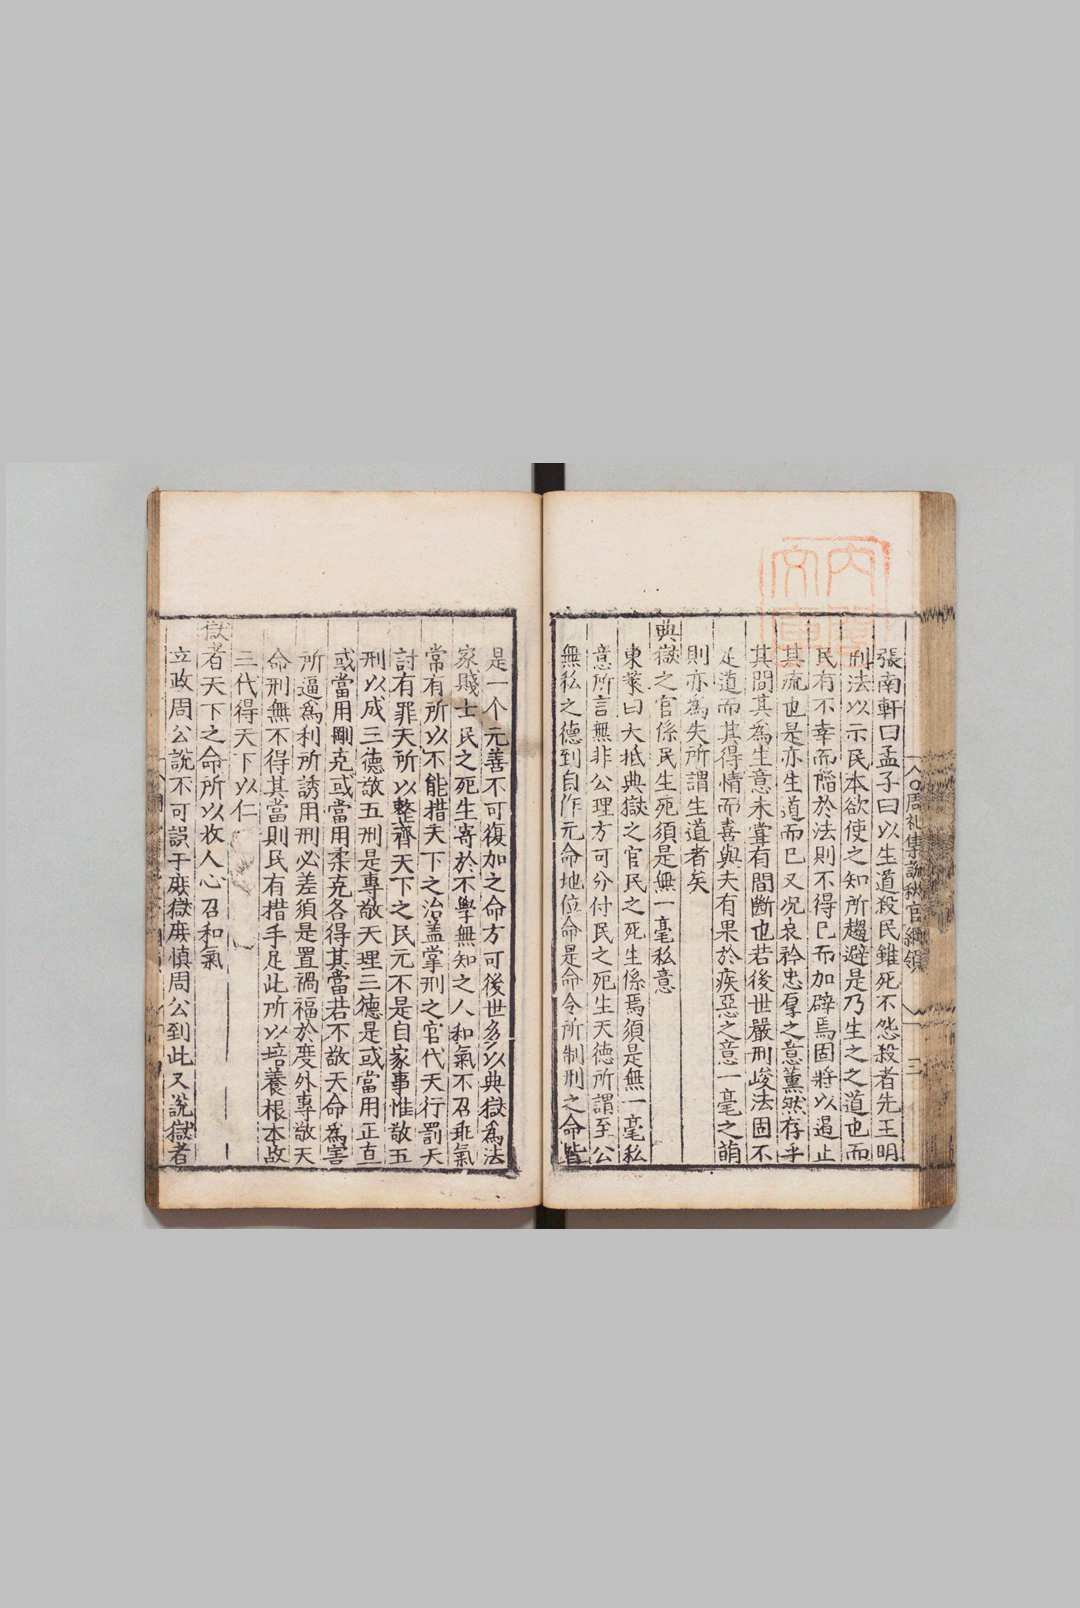 張南軒曰孟子曰以生道殺民雖死不怨殺者先王明
刑法以示民本欲使之知所趨避是乃生之之道也而
民有不幸而陷於法則不得已而加辟焉固將以遏止
其流也是亦生道而已又况哀矜忠厚之意薰然存乎
其間其為生意未嘗有間斷也若後世嚴刑峻法固不
足道而其得情而喜與夫有果於疾惡之意一毫之萌
則亦為失所謂生道者矣
典獄之官係民生死須是無一毫私意
東萊曰大抵典獄之官民之死生係焉須是無一毫私
意所言無非公理方可分付民之死生天德所謂至公
無私之德到自作元命地位命是命令所制刑之命皆
是一个元善不可復加之命方可後世多以典獄為法
家賤士民之死生寄於不學無知之人和氣不召乖氣
常有所以不能措天下之治盖掌刑之官代天行罰天
討有罪天所以整齊天下之民元不是自家事惟敬五
刑以成三德敬五刑是專敬天理三德是或當用正直
或當用剛克或當用柔克各得其當若不敬天命為害
所逼為利所誘用刑必差須是置禍福於度外專敬天
命刑無不得其當則民有措手足此所以培養根本故
三代得天下以仁
獄者天下之命所以收人心召和氣
立政周公說不可誤于庶獄庶慎周公到此又說獄者
周礼集說秋官綱領
三
內閣文庫